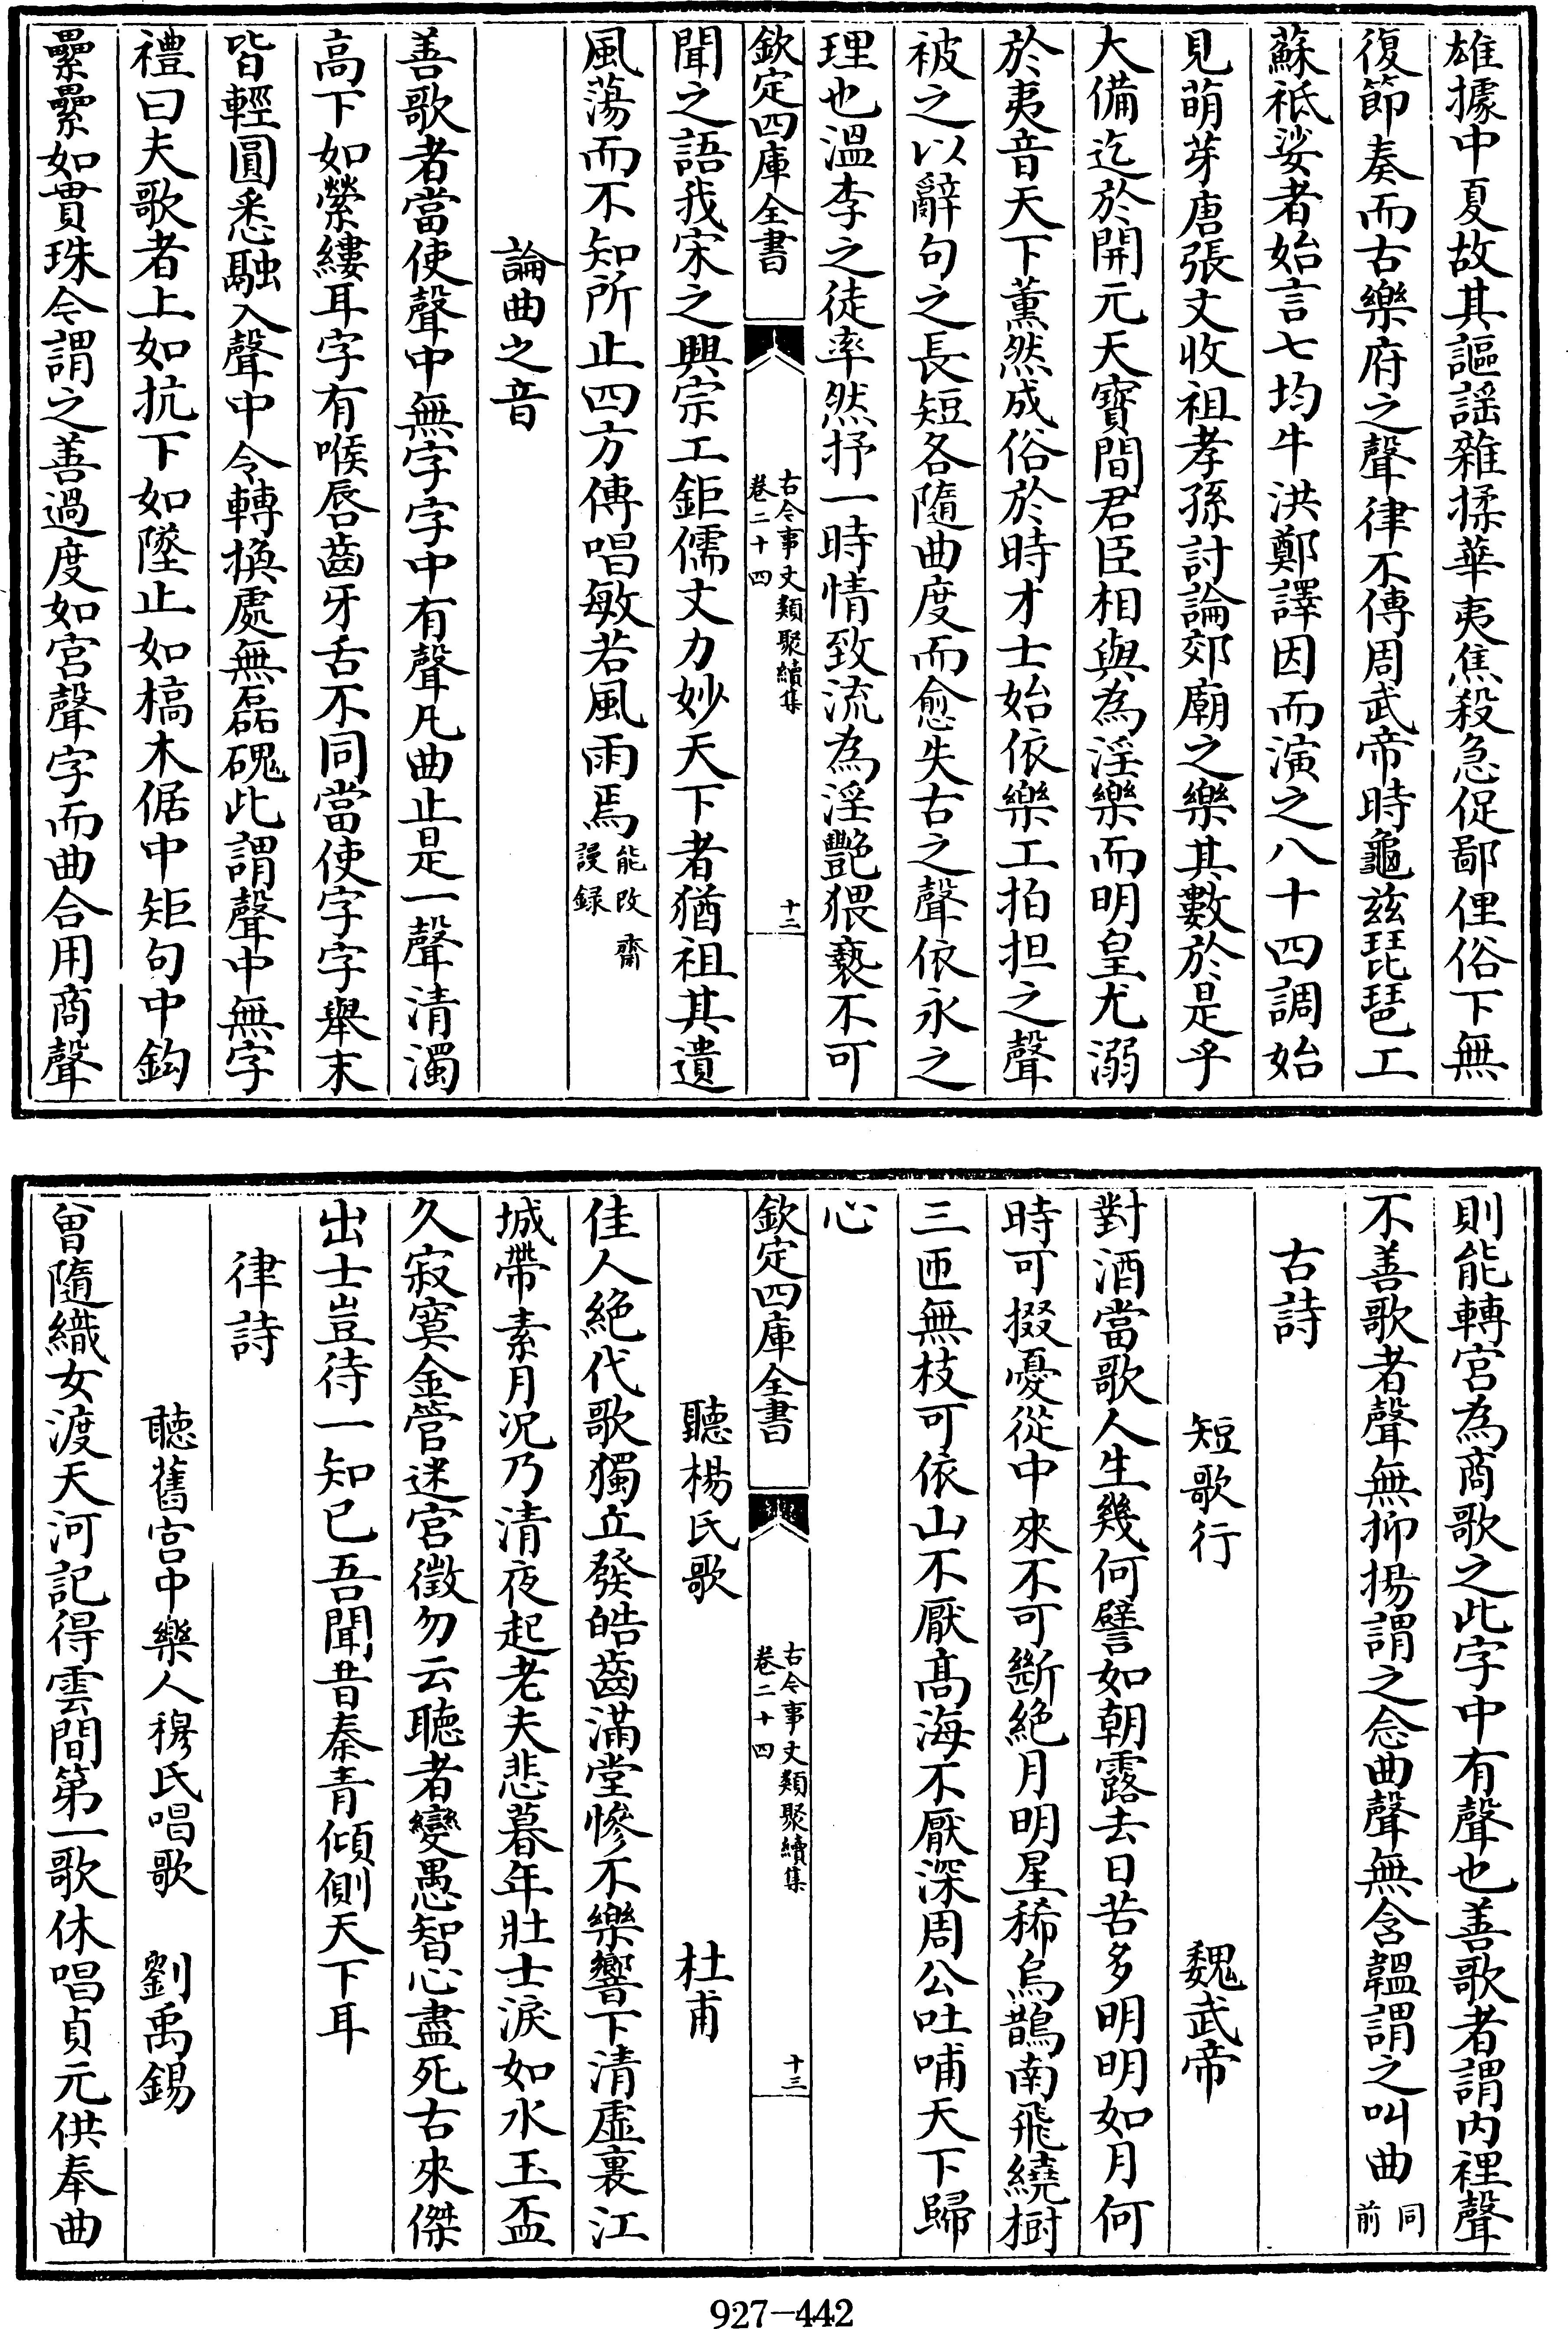 雄據中夏故其謳謡雜揉華夷焦殺急促鄙俚俗下無
復節奏而古樂府之聲律不傳周武帝時龜兹琵琶工
蘇祗娑者始言七均牛洪鄭譯因而演之八十四調始
見萌芽唐張文收祖孝孫討論郊廟之樂其數於是乎
大備迄於開元天寳間君臣相與為淫樂而明皇尤溺
於夷音天下薫然成俗於時才士始依樂工拍担之聲
被之以辭句之長短各隨曲度而愈失古之聲依永之
理也溫李之徒率然抒一時情致流為淫艷猥褻不可
欽定四庫全書
古今事文類聚續集
卷二十四
十二
聞之語我宋之興宗工鉅儒文力妙天下者猶祖其遺
風蕩而不知所止四方傳唱敏若風雨焉
能改齋
謾録
論曲之音
善歌者當使聲中無字字中有聲凡曲止是一聲清濁
高下如縈縷耳字有喉唇齒牙舌不同當使字字舉末
皆輕圓悉融入聲中令轉換處無磊磈此謂聲中無字
禮曰夫歌者上如抗下如墜止如槁木倨中矩句中鈎
纍纍如貫珠今謂之善過度如宫聲字而曲合用商聲
則能轉宫為商歌之此字中有聲也善歌者謂内裡聲
不善歌者聲無抑揚謂之念曲聲無含韞謂之叫曲
同
前
古詩
短歌行 魏武帝
對酒當歌人生幾何譬如朝露去日苦多明明如月何
時可掇憂從中來不可斷絶月明星稀烏鵲南飛繞樹
三匝無枝可依山不厭髙海不厭深周公吐哺天下歸
心
欽定四庫全書
古今事文類聚續集
卷二十四
十三
聽楊氏歌 杜甫
佳人絶代歌獨立發皓齒滿堂慘不樂響下清虚裏江
城帶素月况乃清夜起老夫悲暮年壯士淚如水玉盃
久寂寞金管迷宫徵勿云聽者變愚智心盡死古來傑
出士豈待一知已吾聞昔秦青傾側天下耳
律詩
聽舊宫中樂人穆氏唱歌 劉禹錫
曾隨織女渡天河記得雲間第一歌休唱貞元供奉曲
927-442